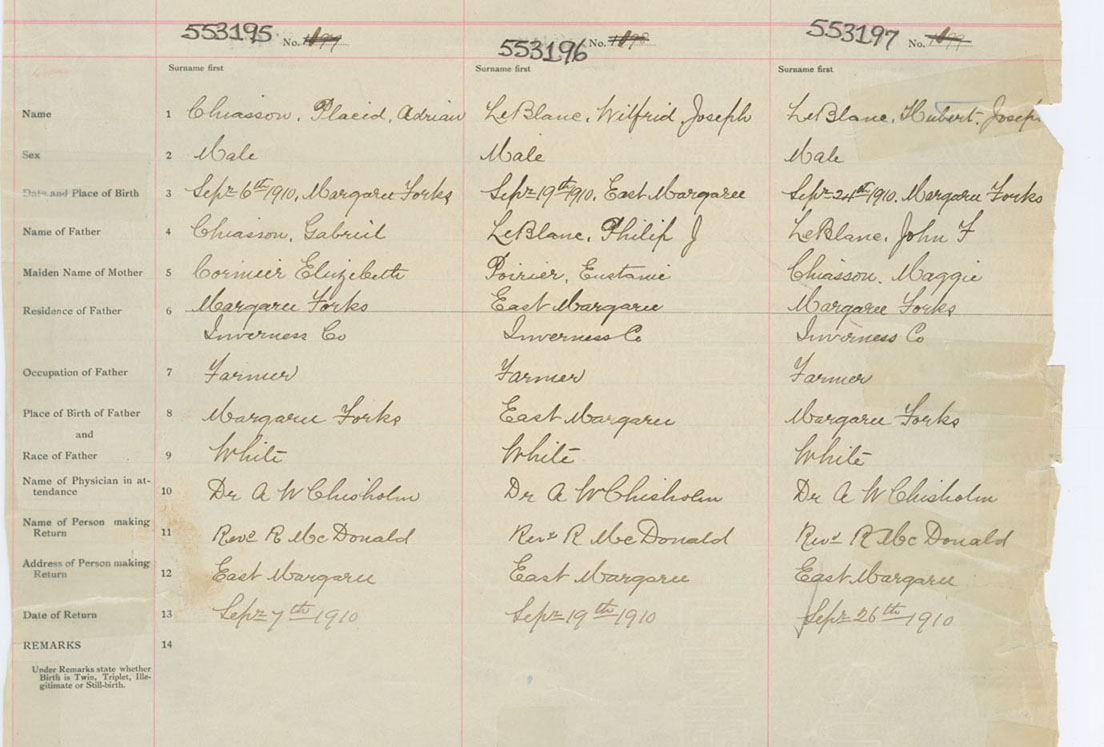 553195 No. 553196 No. 553197 No.
Surname first Surname first Surname first
Name 1 Chiasson, Placid, Adrian LeBlanc, Wilfrid Joseph LeBlanc, Hubert Joseph
Sex 2 Male Male Male
Date and Place of Birth 3 Sept 6th 1910, Margaree Forks Sept 19th 1910, East Margaree Sept 24th 1910, Margaree Forks
Name of Father 4 Chiasson, Gabriel LeBlanc, Philip J LeBlanc, John F
Maiden Name of Mother 5 Cormier Elizebeth Poirier, Eustanie Chiasson, Maggie
Residence of Father 6 Margaree Forks East Margaree Margaree Forks
Inverness Co Inverness Co Inverness Co
Occupation of Father 7 Farmer Farmer Farmer
Place of Birth of Father 8 Margaree Forks East Margaree Margaree Forks
and
Race of Father 9 White White White
Name of Physician in at-
tendance 10 Dr A W Chisholm Dr A W Chisholm Dr A W Chisholm
Name of Person making
Return 11 Revd R McDonald Revd R McDonald Revd R McDonald
Address of Person making
Return 12 East Margaree East Margaree East Margaree
Date of Return 13 Sept 7th 1910 Sept 19th 1910 Sept 26th 1910
REMARKS 14
Under Remarks state whether
Birth is Twin, Triplet, Ille-
gitimate or Still-birth.